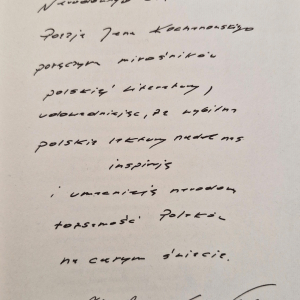 Narodowego
Poezję Jana Kochanowskiego
połączyła miłośników
polskiej literatury,
udowadniając, że wybitne
polskie lektury nadal nas
inspirują
i umacniają narodową
tożsamość Polaków
na całym świecie.